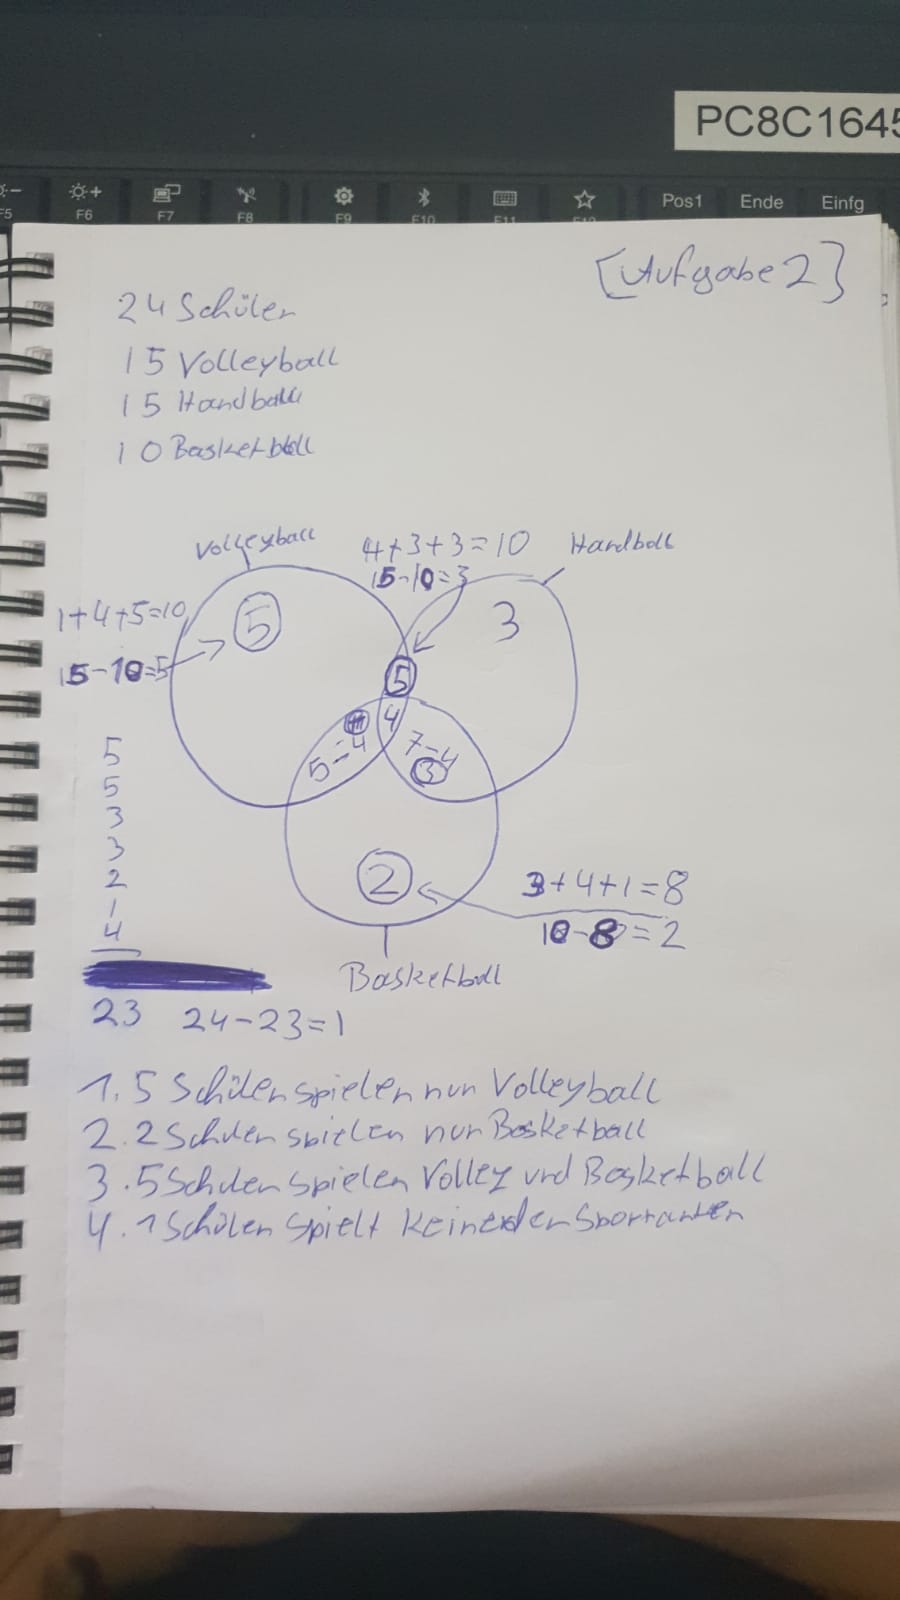 PC8C1645
F5 F6 F7 F8 F9 F10 F11 Pos1 Ende Einfg
[Aufgabe 2]
24 Schüler
15 Volleyball
15 Handball
10 Basketball
Volleyball
4+3+3=10
Handball
15-10=3
1+4+5=10
5
3
15-10=5
5
4
5-4
7-4
3
5
5
3
3
2
1
4
2
3+4+1=8
10-8=2
Basketball
23 24-23=1
1. 5 Schüler spielen nur Volleyball
2. 2 Schuler spielen nur Basketball
3. 5 Schuler spielen Volley und Basketball
4. 1 Schüler spielt keine der Sportarten